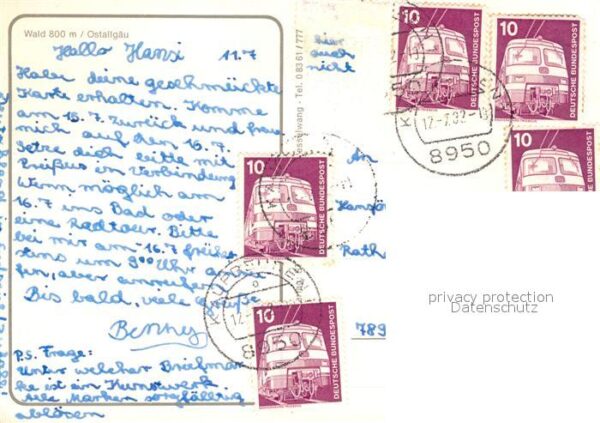 Wald 800 m / Ostallgäu
Hallo Hansi 11.7
Habe deine geschmückte
Karte erhalten. Komme
am 15.7. zurück und
mich auf den 16.7.
Setze dich bitte mit
in Verbindung
Wenn möglich am
16.7 ins Bad oder
eine Radtour. Bitte
bei mir am 16.7 frühe
stens um 9⁰⁰ Uhr
fen, aber anrufen
Bis bald, viele Grüße
Benney
P.S. Frage:
Unter welcher Briefmar
ke ist ein Kunstwerk
viele Marken sorgfältig
ablösen
Tel. 0 83 61 / 777
hier
auch
nicht
An
Rath
789
10
DEUTSCHE BUNDESPOST
10
DEUTSCHE BUNDESPOST
10
10
DEUTSCHE BUNDESPOST
10
DEUTSCHE BUNDESPOST
12.-7.82
8950
KAUFBEUREN
12.
8950
privacy protection
Datenschutz